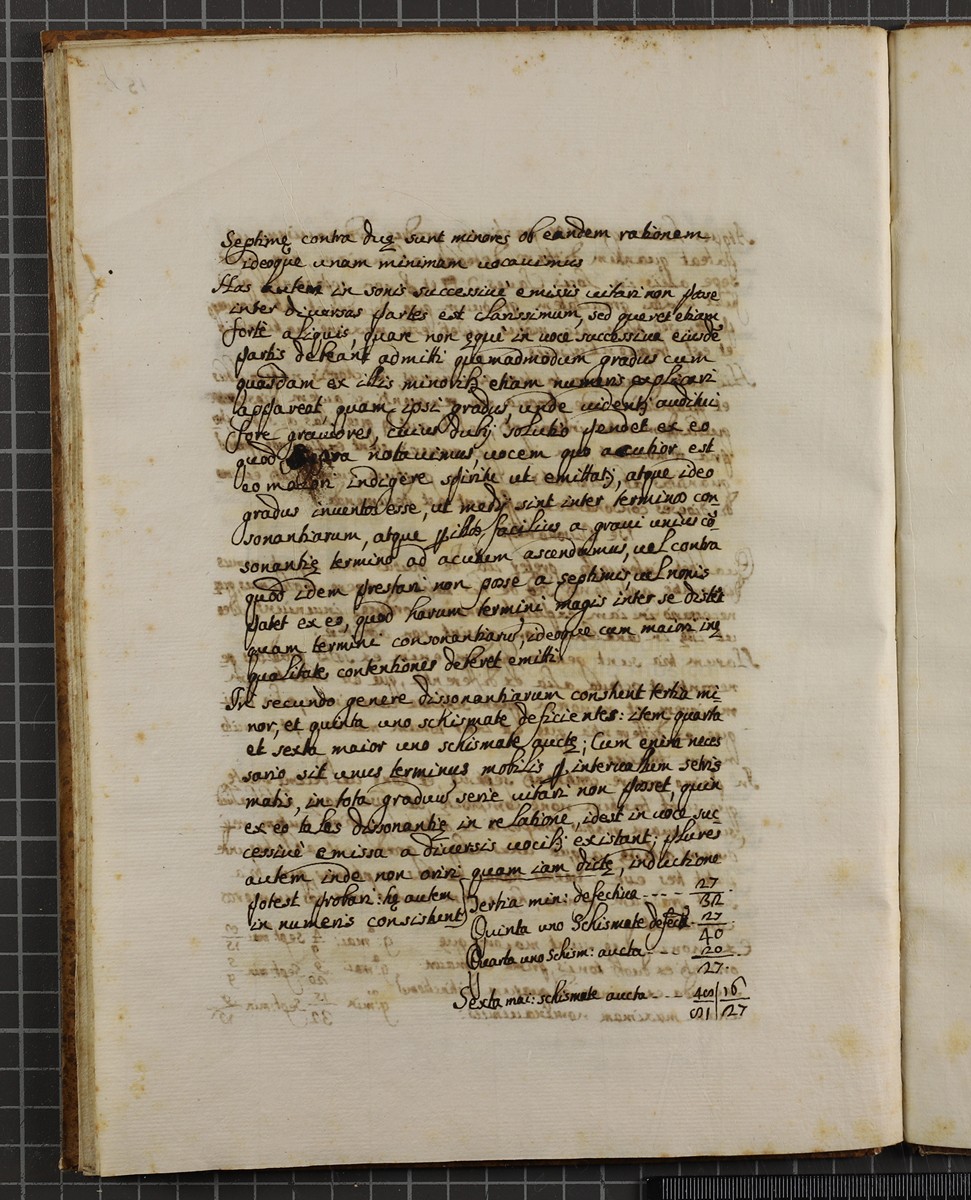 Septimę contra duę sunt minores ob eandem rationem
ideoque unam minimam vocavimus
Has autem in sonis successivè emissis vitari non posse
inter diversas partes est clarissimum, sed queret etiam
fortè aliquis, quare non ęquè in voce successiva eiusdē
partis debeant admitti quemadmodum gradus cum
quasdam ex illis minoribꝫ etiam numeris explicari
appareat quam ipsi gradus, unde videntꝫ auditui
fore graviores, cuius dubij solutio pendet ex eo
quod supra notavimus, vocem quo acutior est
eo maiori indigere spiritu ut emittatꝫ, atque ideo
gradus inventos esse, ut medij sint inter terminos con
sonantiarum, atque ꝑ illos facilius a gravi unius cō
sonantię termino ad acutum ascendamus, vel contra
quod idem prestari non posse a septimis, vel nonis
patet ex eo, quod harum termini magis inter se distēt
quam termini consonantiarū, ideoque cum maiori inę
qualitate contentiones deberet emitti
In secundo genere dissonantiarum consistunt tertia mi
nor, et quinta uno schismate deficientes: item quarta
et sexta maior uno schismate auctę; Cum enim neces
sario sit unus terminus mobilis ꝑ intervallum schis
matis, in tota graduū serie vitari non posset, quin
ex eo tales dissonantię in relatione, idest in voce suc
cessivè emissa a diversis vocibꝫ existant; plures
autem inde non oriri quam iam dictę, inductione
potest probari: hę autem
in numeris consistunt
Tertia min: defectiva ---- 27/32
Quinta uno Schismate defect: 27/40
Quarta uno Schism: aucta --- 20/27
Sexta mai: schismate aucta --- 48/81 | 16/27